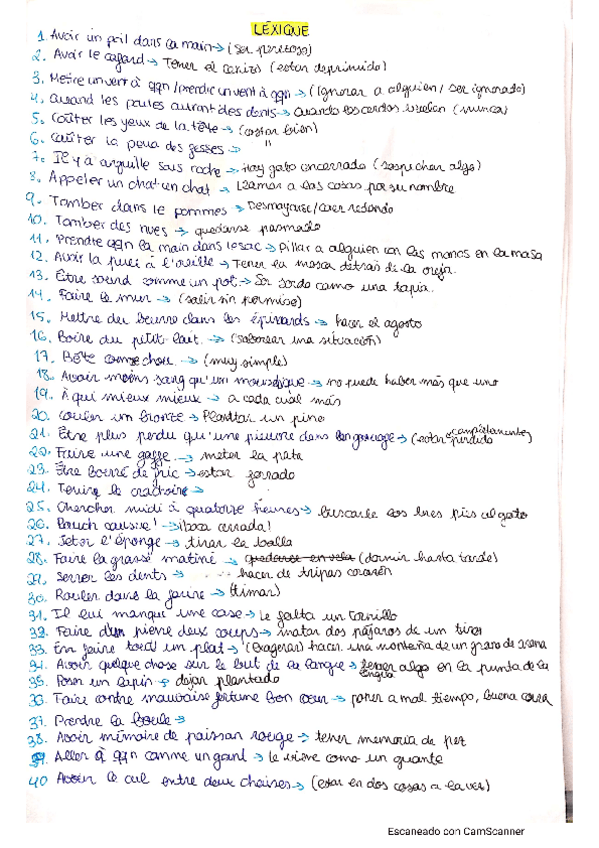 LÉXIQUE
1. Avoir un poil dans ca main → (ser perezoso)
2. Avoir le cafard → Tener el (estar deprimido)
3. Mettre un vent à qqn/prendre un vent à qqn → (Ignorar a alguien / ser ignorado)
4. Quand les poules auront des dents → Cuando los cerdos vuelan (nunca)
5. Coûter les yeux de la tête → (costar bien)
6. Coûter la peau des fesses → "
7. Il y a anguille sous roche → Hay gato encerrado (sospechar algo)
8. Appeler un chat un chat → Llamar a las cosas por su nombre
9. Tomber dans le pommes → Desmayarse/caer redondo
10. Tomber des nues → quedarse pasmado
11. Prendre qqn la main dans le sac → Pillar a alguien con las manos en la masa
12. Avoir la puce à l'oreille → Tener la mosca detrás de la oreja.
13. Être sourd comme un pot → Ser sordo como una tapia.
14. Faire le mur → (salir sin permiso)
15. Mettre du beurre dans les épinards → hacer el agosto
16. Boire du petit lait. → (saborear una situación)
17. Bête comme chou. → (muy simple)
18. Avoir moins sang qu'un moustique → no puede haber más que uno
19. À qui mieux mieux → a cada cual más
20. Couler un bronze → Plantar un pino
21. Être plus perdu qu'une pieuvre dans → (estar completamente perdido)
22. Faire une gaffe → meter la pata
23. Être bourré de fric → estar forrado
24. Tenir le crachoir →
25. Chercher midi à quatorze heures → buscarle los tres pies al gato
26. Bouch cousue! → ¡boca cerrada!
27. Jeter l'éponge → tirar la toalla
28. Faire la grasse matiné → quedarse en vela (dormir hasta tarde)
29. Serrer les dents → hacer de tripas corazón
30. Rouler dans la farine → (timar)
31. Il lui manque une case → Le falta un tornillo
32. Faire d'un pierre deux coups → matar dos pájaros de un tiro
33. En faire tout un plat → (exagerar) hacer una montaña de un grano de arena
34. Avoir quelque chose sur le bout de la langue → tener algo en la punta de la lengua
35. Poser un lapin → dejar plantado
36. Faire contre mauvaise fortune bon cœur → poner a mal tiempo, buena cara
37. Prendre la boule →
38. Avoir mémoire de poisson rouge → tener memoria de pez
39. Aller à qqn comme un gant → le viene como un guante
40. Avoir le cul entre deux chaises → (estar en dos cosas a la vez)
Escaneado con CamScanner